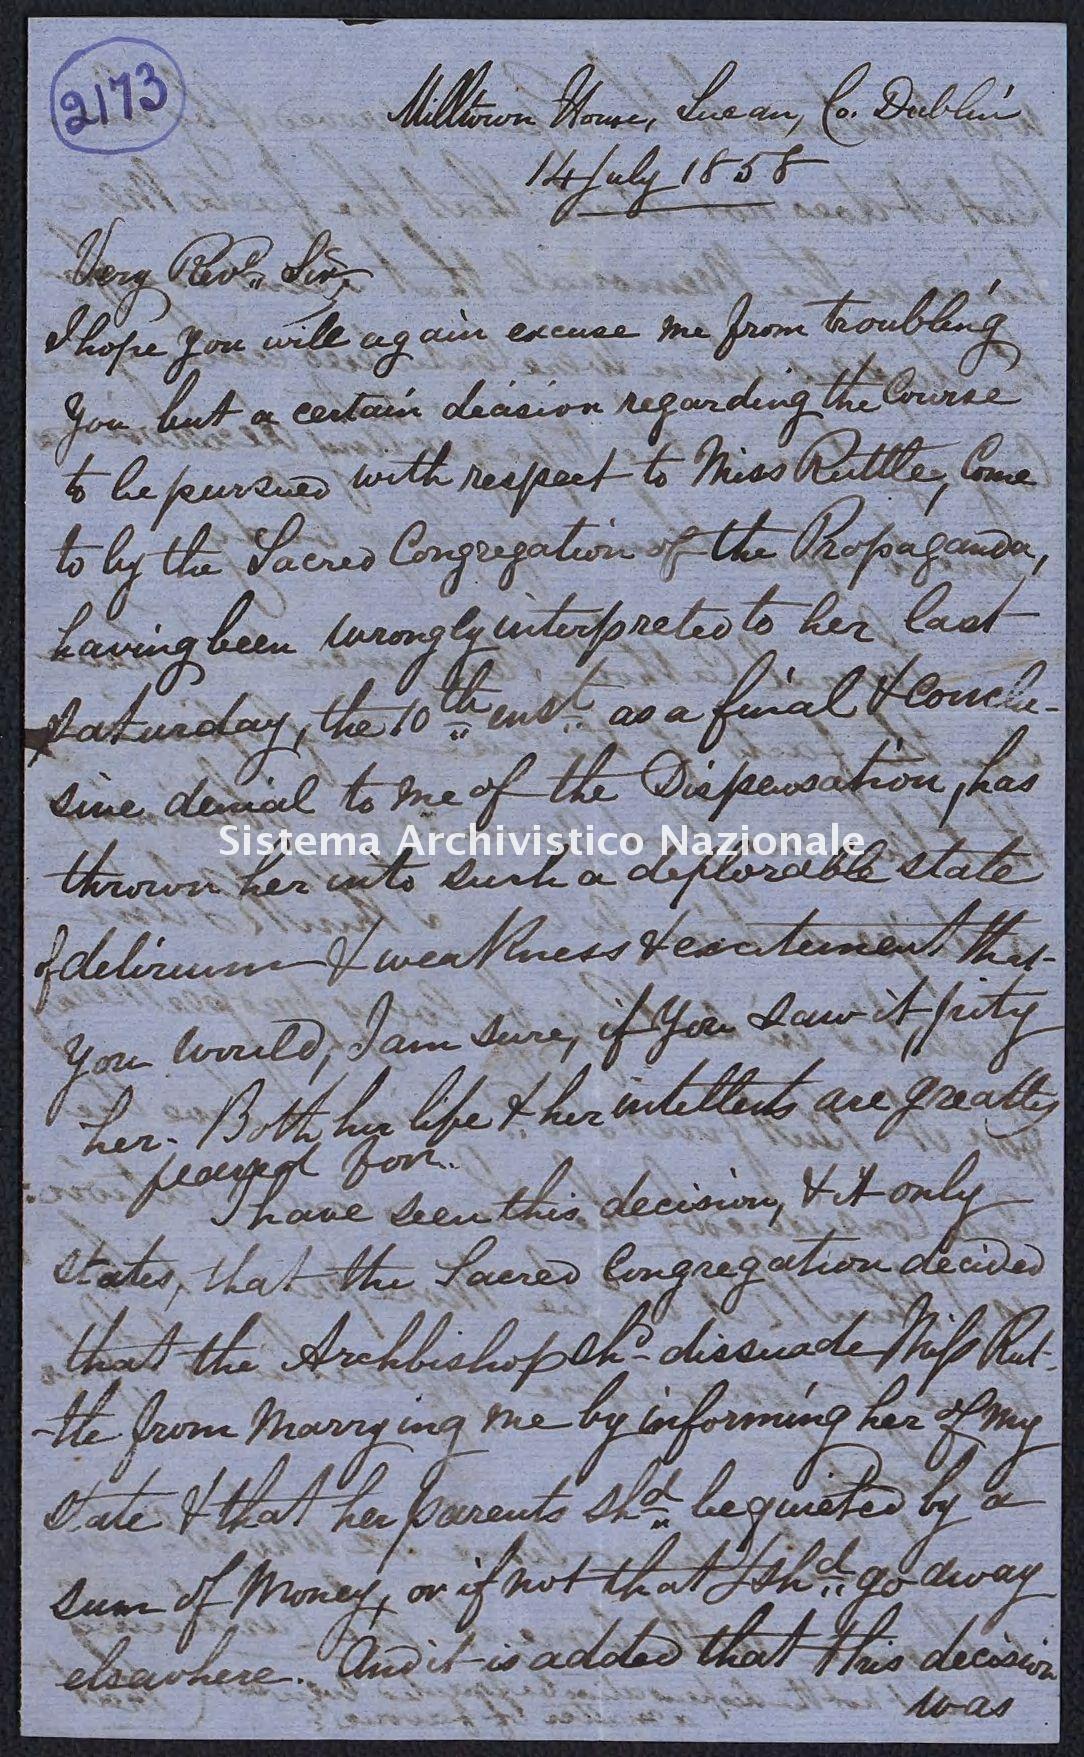 2173
Milltown House, Lucan, Co. Dublin
14 July 1858
Very Revd. Sir,
I hope you will again excuse me from troubling
you but a certain decision regarding the Course
to be pursued with respect to Miss Ruttle, come
to by the Sacred Congregation of the Propaganda,
having been wrongly interpreted to her last
Saturday, the 10th inst. as a final & conclu-
sive denial to me of the Dispensation, has
Sistema Archivistico Nazionale
thrown her into such a deplorable state
of delirium & weakness & excitement that
you would, I am sure, if you saw it, pity
her. Both her life & her intellects are greatly
feared for.
I have seen this decision, & it only
states, that the Sacred Congregation decided
that the Archbishop shd. dissuade Miss Rut-
-tle from marrying me by informing her of my
state & that her parents shd. be quieted by a
sum of money, or if not that I shd. go away
elsewhere. And it is added that this decision
was